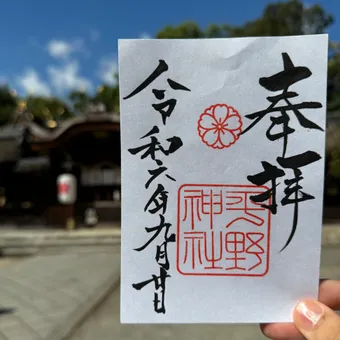 奉拝
平野
神社
令和六年九月廿日